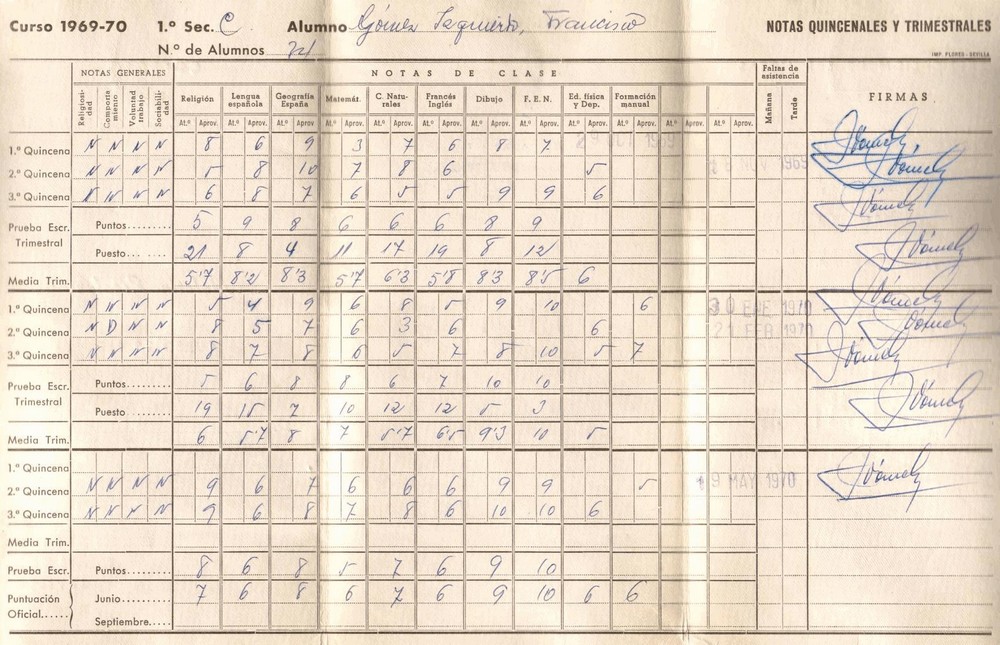 Curso 1969-70 1.º Sec. C Alumno Gómez Izquierdo, Francisco NOTAS QUINCENALES Y TRIMESTRALES
N.º de Alumnos
IMP. FLORES - SEVILLA
NOTAS GENERALES NOTAS DE CLASE Faltas de asistencia
Religiosidad Comportamiento Voluntad trabajo Sociabilidad Religión Lengua española Geografía España Matemát. C. Naturales Francés Inglés Dibujo F. E. N. Ed. física y Dep. Formación manual Mañana Tarde FIRMAS
At.º Aprov. At.º Aprov. At.º Aprov. At.º Aprov. At.º Aprov. At.º Aprov. At.º Aprov. At.º Aprov. At.º Aprov. At.º Aprov. At.º Aprov. At.º Aprov.
1.ª Quincena N N N N 8 6 9 3 7 6 8 7 1969
2.ª Quincena N N N N 5 8 10 7 8 6 5 1969
3.ª Quincena N N N N 6 8 7 6 5 5 9 9 6
Prueba Escr. Trimestral Puntos 5 9 8 6 6 6 8 9
Puesto 21 8 4 11 17 19 8 12
Media Trim. 5'7 8'2 8'3 5'7 6'3 5'8 8'3 8'5 6
1.ª Quincena N N N N 5 4 9 6 8 5 9 10 6 30 ENE 1970
2.ª Quincena N D N N 8 5 7 6 3 6 6 21 FEB 1970
3.ª Quincena N N N N 8 7 8 6 5 7 8 10 5 7
Prueba Escr. Trimestral Puntos 5 6 8 8 6 7 10 10
Puesto 19 15 7 10 12 12 5 3
Media Trim. 6 5'7 8 7 5'7 6'5 9'3 10 5
1.ª Quincena
2.ª Quincena N N N N 9 6 7 6 6 6 9 9 5 19 MAY 1970
3.ª Quincena N N N N 9 6 8 7 8 6 10 10 6
Media Trim.
Prueba Escr. Puntos 8 6 8 5 7 6 9 10
Puntuación Oficial Junio 7 6 8 6 7 6 9 10 6 6
Septiembre